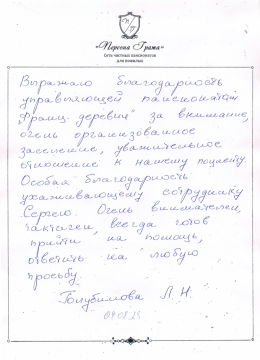 П/Г
«Первая Грамм»
Сеть частных пансионатов
для пожилых
Выражаю благодарность
управляющей пансионатом
"Транц-деревня" за внимание,
очень организованное
заселение, уважительное
отношение к нашему пациенту.
Особая благодарность
ухаживающему сотруднику
Сергею. Очень внимателен,
тактичен, всегда готов
прийти на помощь,
ответить на любую
просьбу.
Голубимова Л. Н.
09.08.25